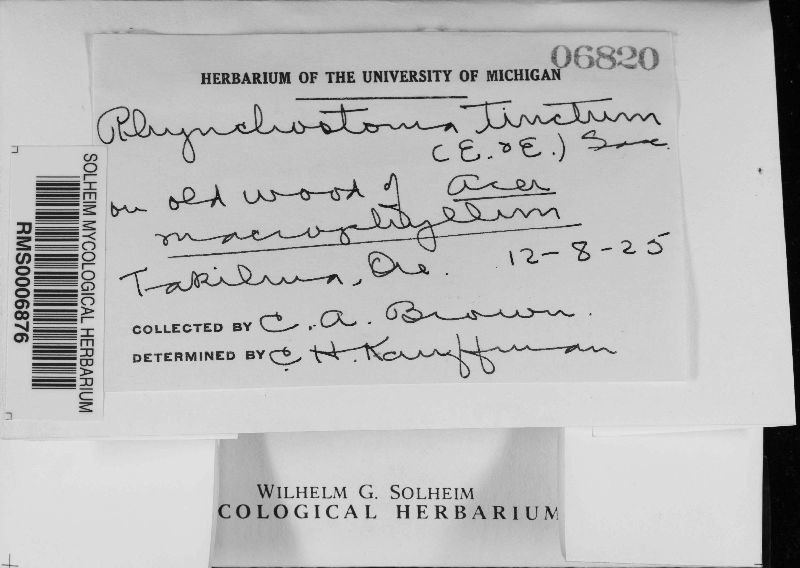 06820
HERBARIUM OF THE UNIVERSITY OF MICHIGAN
Rhynchostoma tinctum
(E. & E.) Sacc.
on old wood of Acer
macrophyllum
Takilma, Ore. 12-8-25
COLLECTED BY C. A. Brown.
DETERMINED BY C. H. Kauffman
SOLHEIM MYCOLOGICAL HERBARIUM
RMS0006876
WILHELM G. SOLHEIM
COLOGICAL HERBARIUM